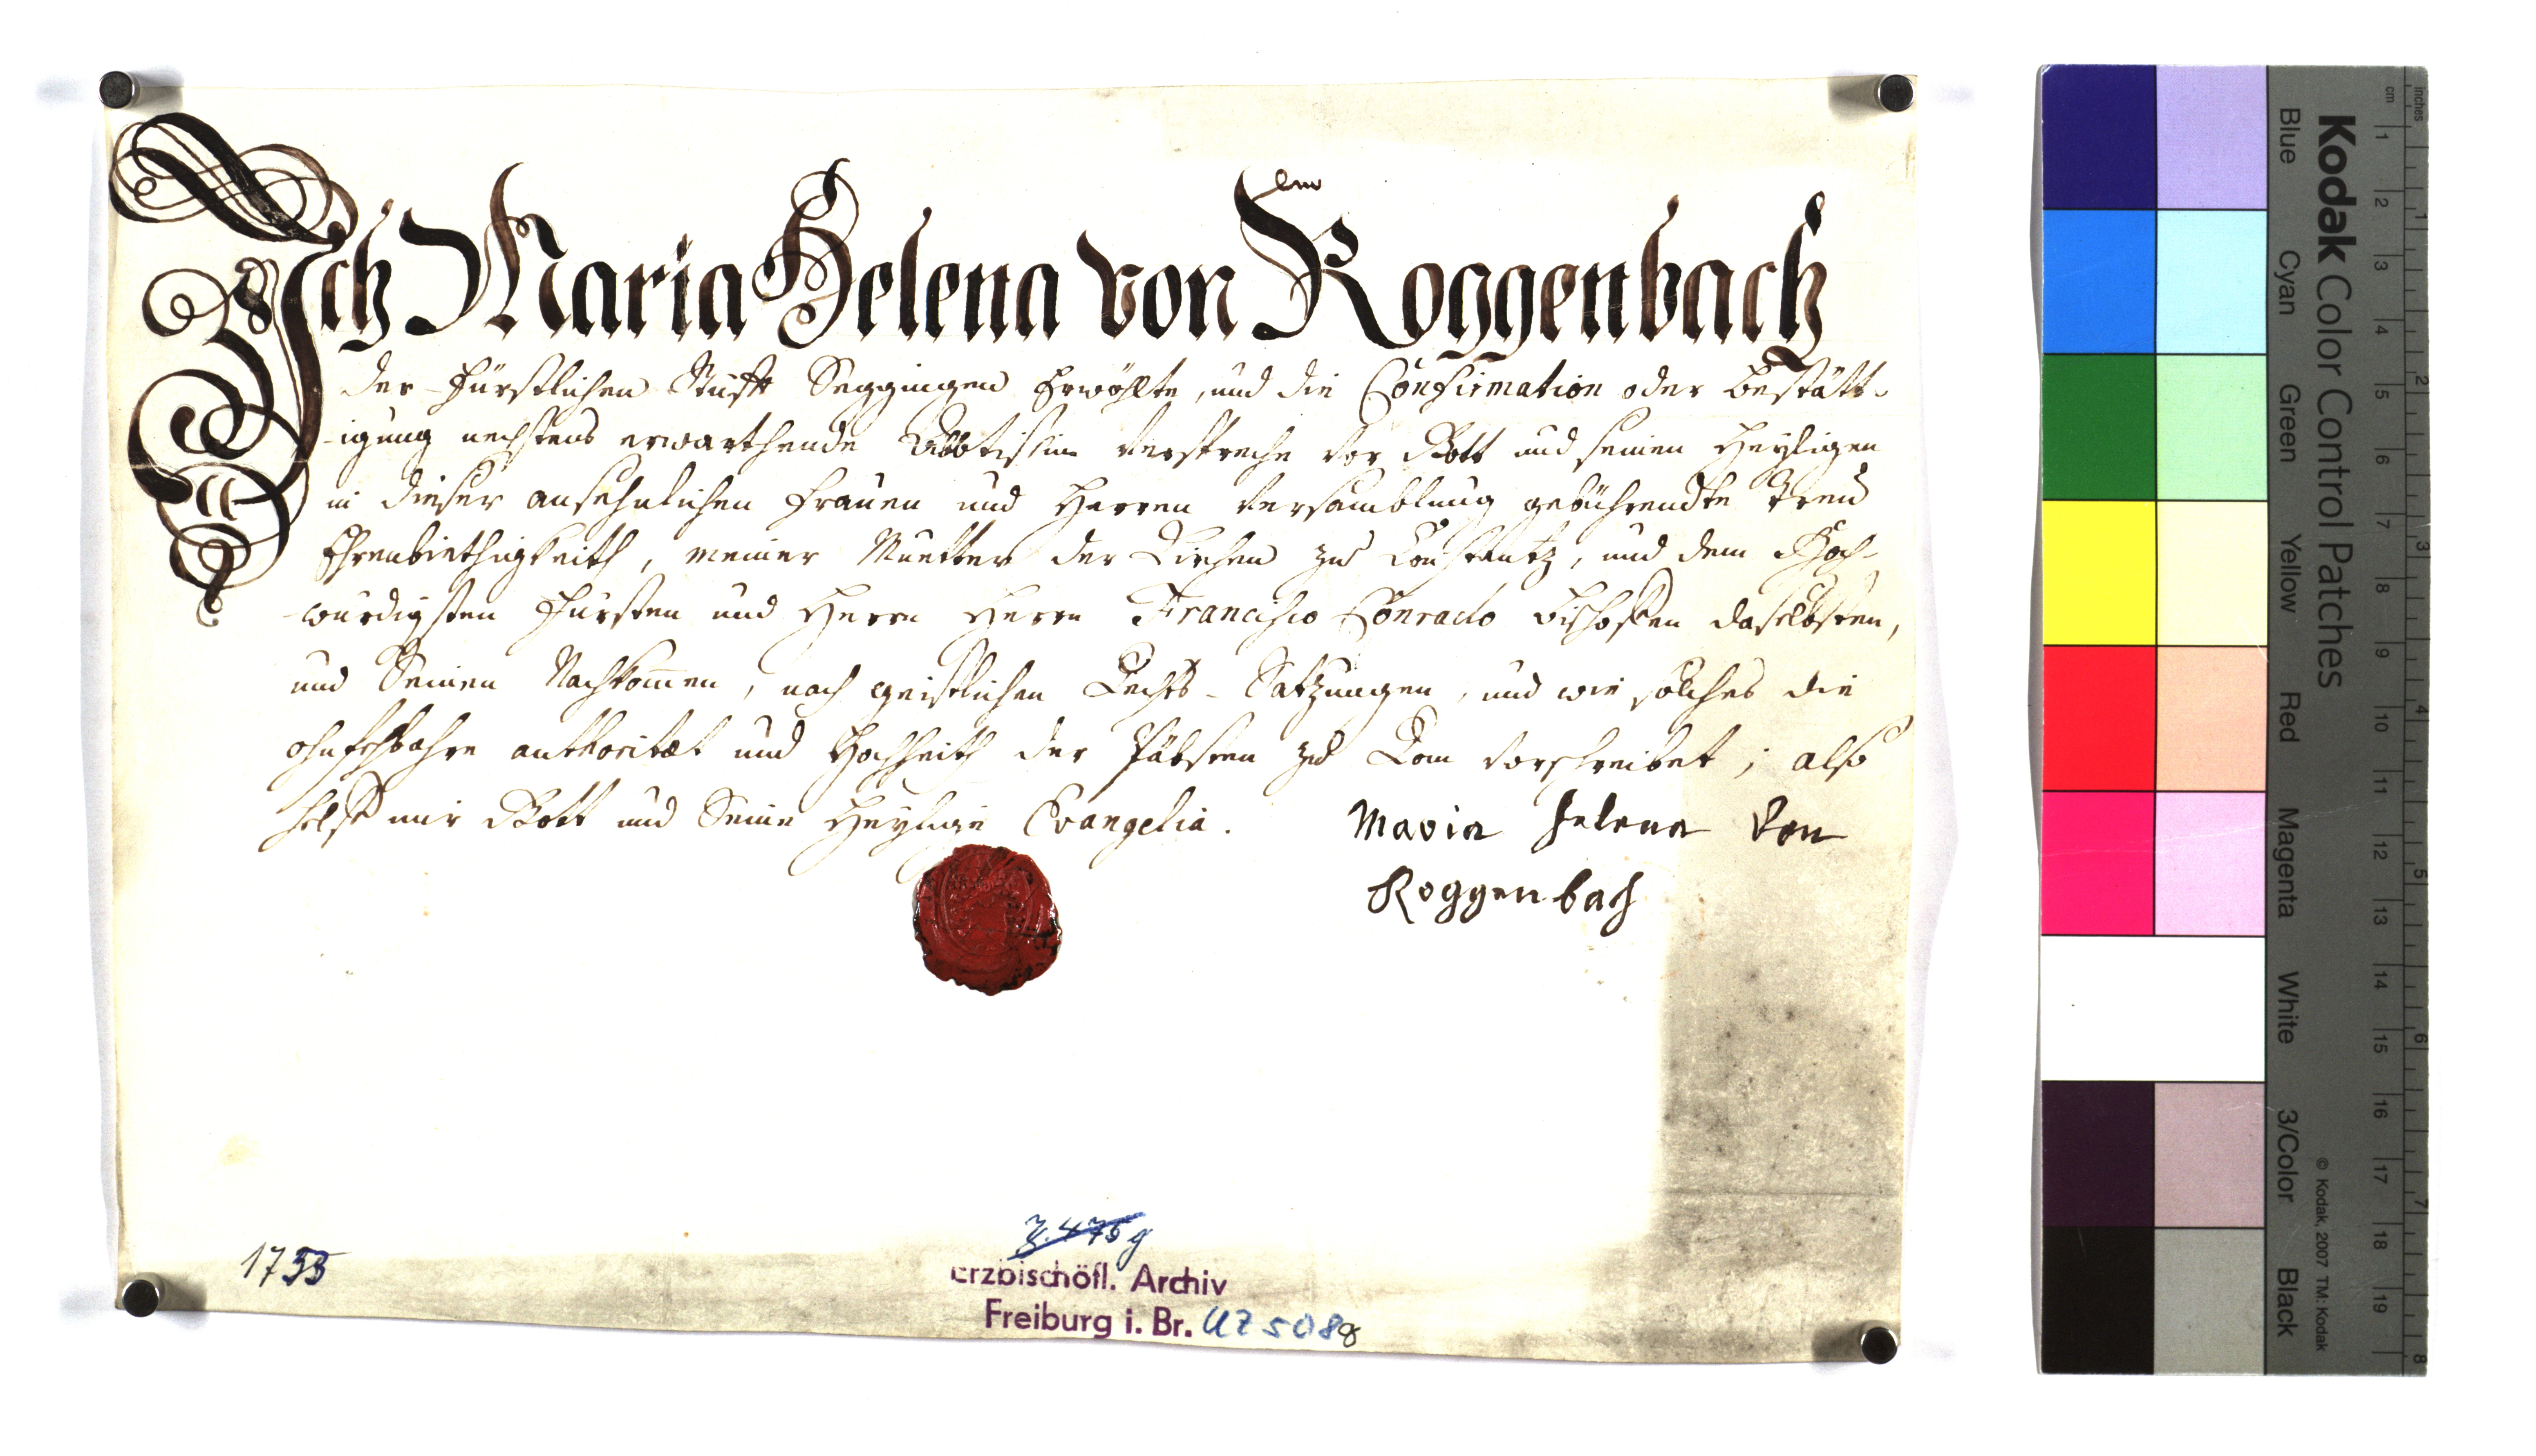 Ich Maria Helena von Roggenbach
der Fürstlichen Stüfft Seggingen Erwöhlte, und die Confirmation oder Bestätt-
-igung nechstens erwarthende Abbtissin verspreche vor Gott und seinen Heyligen
in dieser ansehnlichen Frauen und Herren versamblung gebührendte Treu
Ehrenbiethigkeith, meiner Muetter der Kirchen zu Constantz, und dem Hoch-
-würdigsten Fürsten und Herrn Herrn Francisco Conrado Bischoffen daselbsten,
und Seinen Nachkom̅en, nach geistlichen Rechts-Satzungen, und wie solches die
ohnfehlbahre authoritæt und Hochheith der Päbsten zu Rom vorschreibet; also
helff mir Gott und Seine Heylige Evangelia.
Maria Helena von
Roggenbach
1753
Erzbischöfl. Archiv
Freiburg i. Br. UZ 5088
Kodak Color Control Patches
Blue Cyan Green Yellow Red Magenta White 3/Color Black
© Kodak, 2007 TM: Kodak
inches 1 2 3 4 5 6 7 8
cm 1 2 3 4 5 6 7 8 9 10 11 12 13 14 15 16 17 18 19